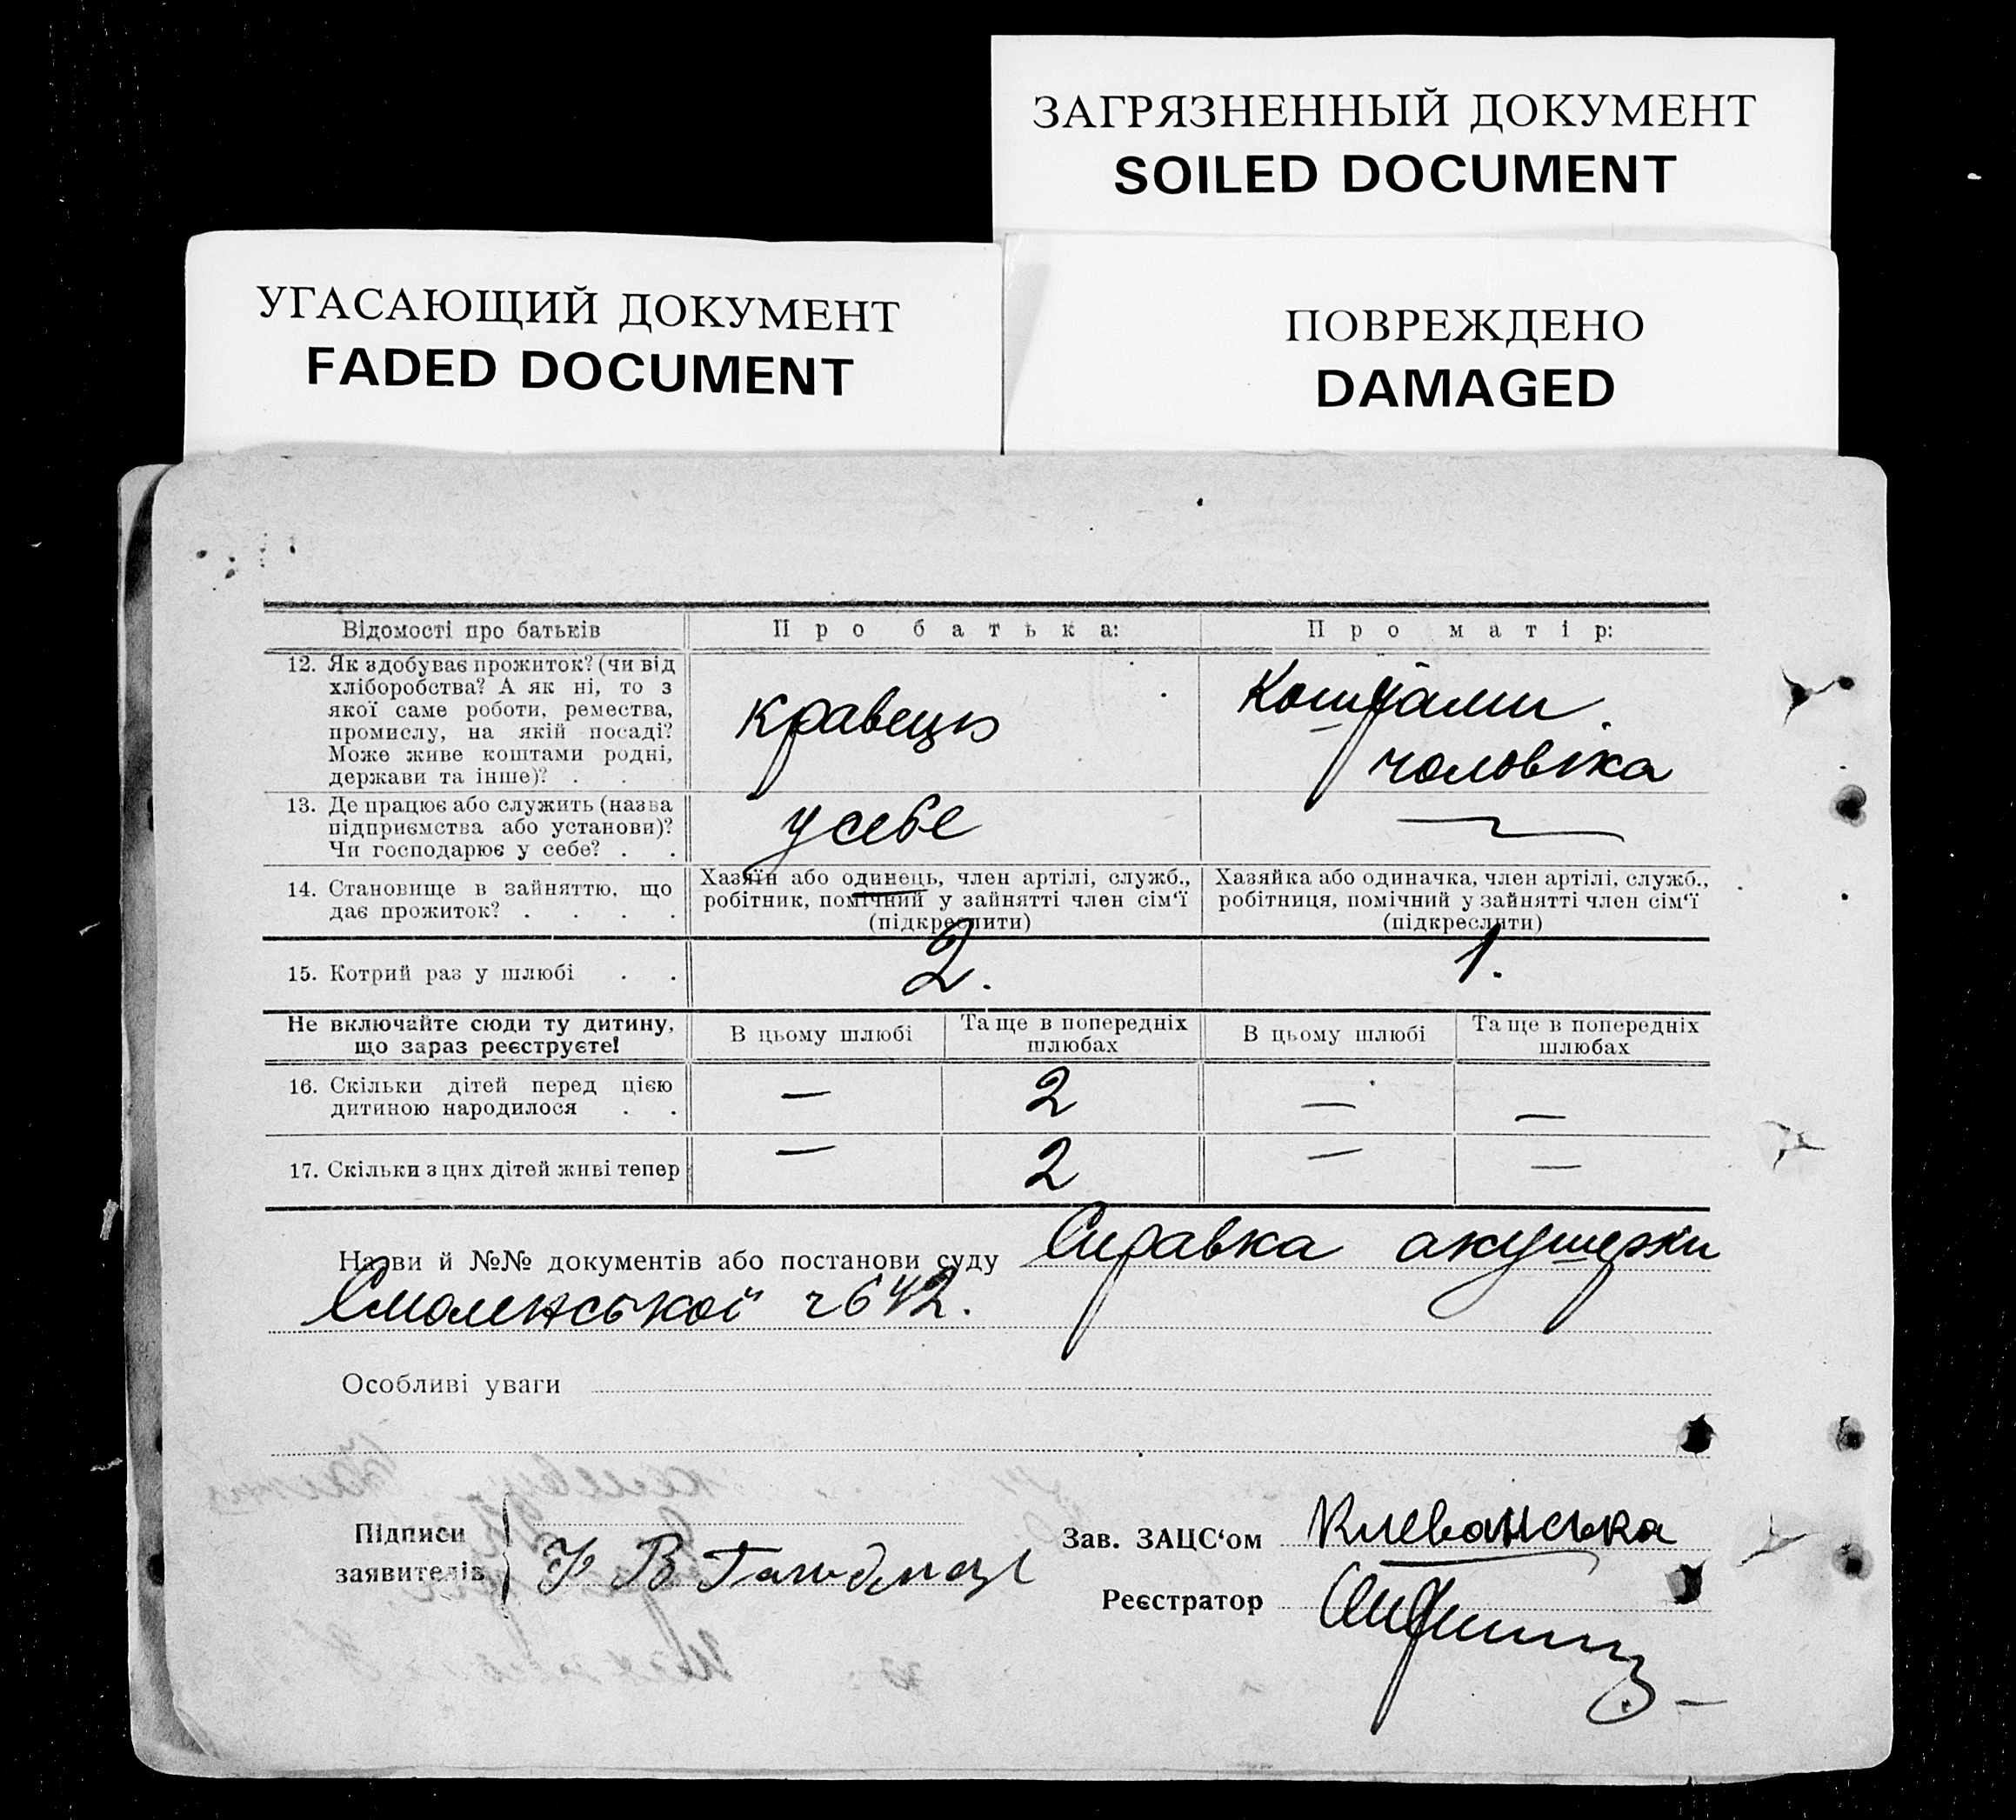 ЗАГРЯЗНЕННЫЙ ДОКУМЕНТ
SOILED DOCUMENT
УГАСАЮЩИЙ ДОКУМЕНТ
FADED DOCUMENT
ПОВРЕЖДЕНО
DAMAGED
Відомості про батьків Про батька: Про матір:
12. Як здобуває прожиток? (чи від
хліборобства? А як ні, то з
якої саме роботи, ремества,
промислу, на якій посаді?
Може живе коштами родні,
держави та інше)? . .
кравець
Коштами
чоловіка
13. Де працює або служить (назва
підприємства або установи)?
Чи господарює у себе? . .
у себе —
14. Становище в зайняттю, що
дає прожиток? . . . .
Хазяїн або одинець, член артілі, служб.,
робітник, помічний у зайнятті член сім‘ї
(підкреслити)
Хазяйка або одиначка, член артілі, служб.,
робітниця, помічний у зайнятті член сім‘ї
(підкреслити)
15. Котрий раз у шлюбі . . 2. 1.
Не включайте сюди ту дитину,
що зараз реєструєте!
В цьому шлюбі
Та ще в попередніх
шлюбах
В цьому шлюбі
Та ще в попередніх
шлюбах
16. Скільки дітей перед цією
дитиною народилося . .
— 2 — —
17. Скільки з цих дітей живі тепер — 2 — —
Назви й №№ документів або постанови суду Справка акушерки
Смоленської ч 642.
Особливі уваги
Підписи
заявителів
Зав. ЗАЦС‘ом Клеванська
Реєстратор